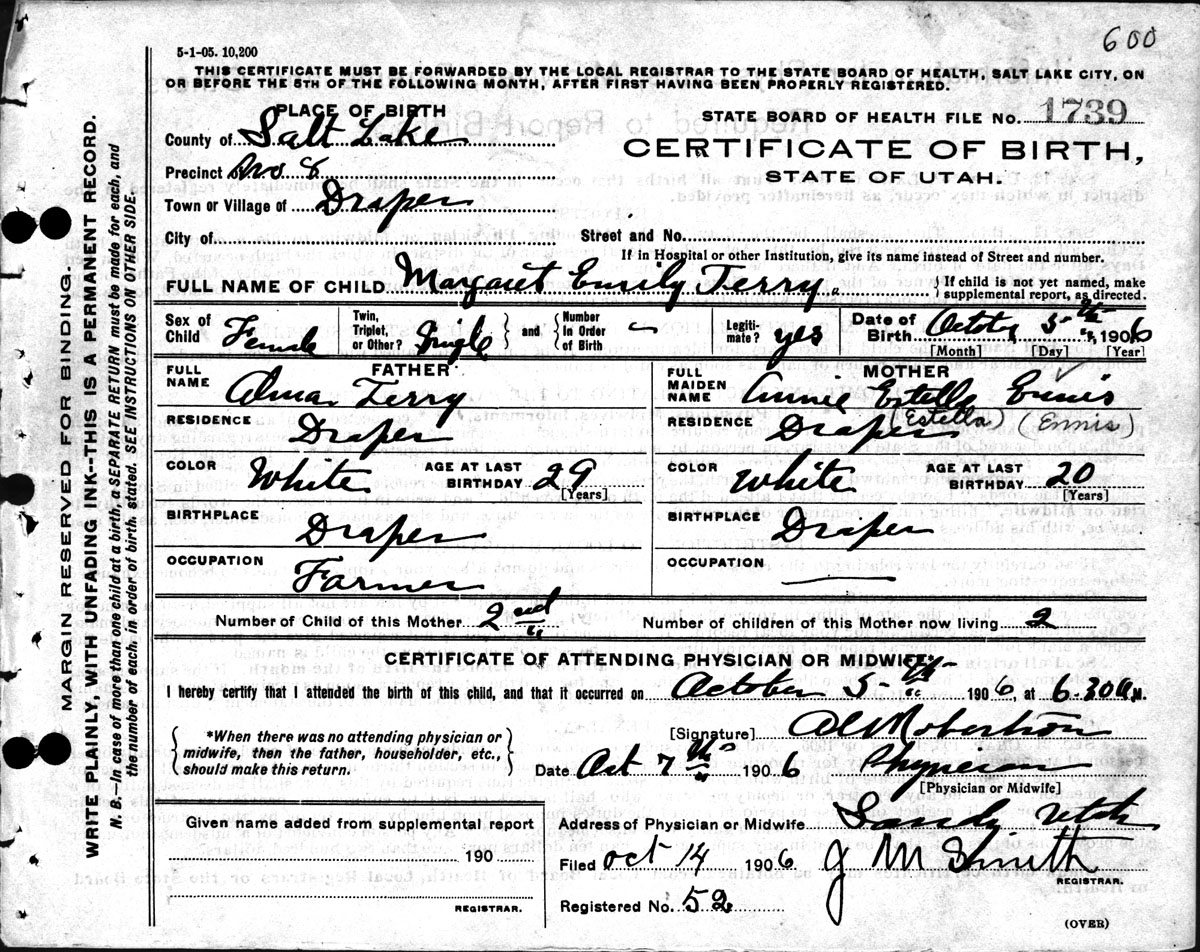 600
5-1-05. 10,200
THIS CERTIFICATE MUST BE FORWARDED BY THE LOCAL REGISTRAR TO THE STATE BOARD OF HEALTH, SALT LAKE CITY, ON
OR BEFORE THE 5TH OF THE FOLLOWING MONTH, AFTER FIRST HAVING BEEN PROPERLY REGISTERED.
PLACE OF BIRTH
STATE BOARD OF HEALTH FILE NO. 1739
County of Salt Lake
CERTIFICATE OF BIRTH,
Precinct No 8
STATE OF UTAH.
Town or Village of Draper
City of Street and No.
If in Hospital or other Institution, give its name instead of Street and number.
FULL NAME OF CHILD Margaret Emily Terry { If child is not yet named, make supplemental report, as directed.
Sex of Child Female Twin, Triplet, or Other? Single } and { Number In Order of Birth – Legiti- mate? yes Date of Birth October 5th 1906
[Month] [Day] [Year]
FATHER MOTHER
FULL NAME Alma Terry FULL MAIDEN NAME Annie Estella Ennis
RESIDENCE Draper RESIDENCE Draper (Estella) (Ennis)
COLOR White AGE AT LAST BIRTHDAY 29 [Years] COLOR White AGE AT LAST BIRTHDAY 20 [Years]
BIRTHPLACE Draper BIRTHPLACE Draper
OCCUPATION Farmer OCCUPATION —
Number of Child of this Mother 2nd Number of children of this Mother now living 2
CERTIFICATE OF ATTENDING PHYSICIAN OR MIDWIFE*
I hereby certify that I attended the birth of this child, and that it occurred on October 5th 1906, at 6-30 a M.
{ *When there was no attending physician or midwife, then the father, householder, etc., should make this return. }
[Signature] Robertson
Date Oct 7th 1906 Physician
[Physician or Midwife]
Given name added from supplemental report
190
REGISTRAR.
Address of Physician or Midwife Sandy Utah
Filed Oct 14 1906 J M Smith
REGISTRAR.
Registered No. 52
(OVER)
MARGIN RESERVED FOR BINDING.
WRITE PLAINLY, WITH UNFADING INK--THIS IS A PERMANENT RECORD.
N. B.—In case of more than one child at a birth, a SEPARATE RETURN must be made for each, and
the number of each, in order of birth, stated. SEE INSTRUCTIONS ON OTHER SIDE.